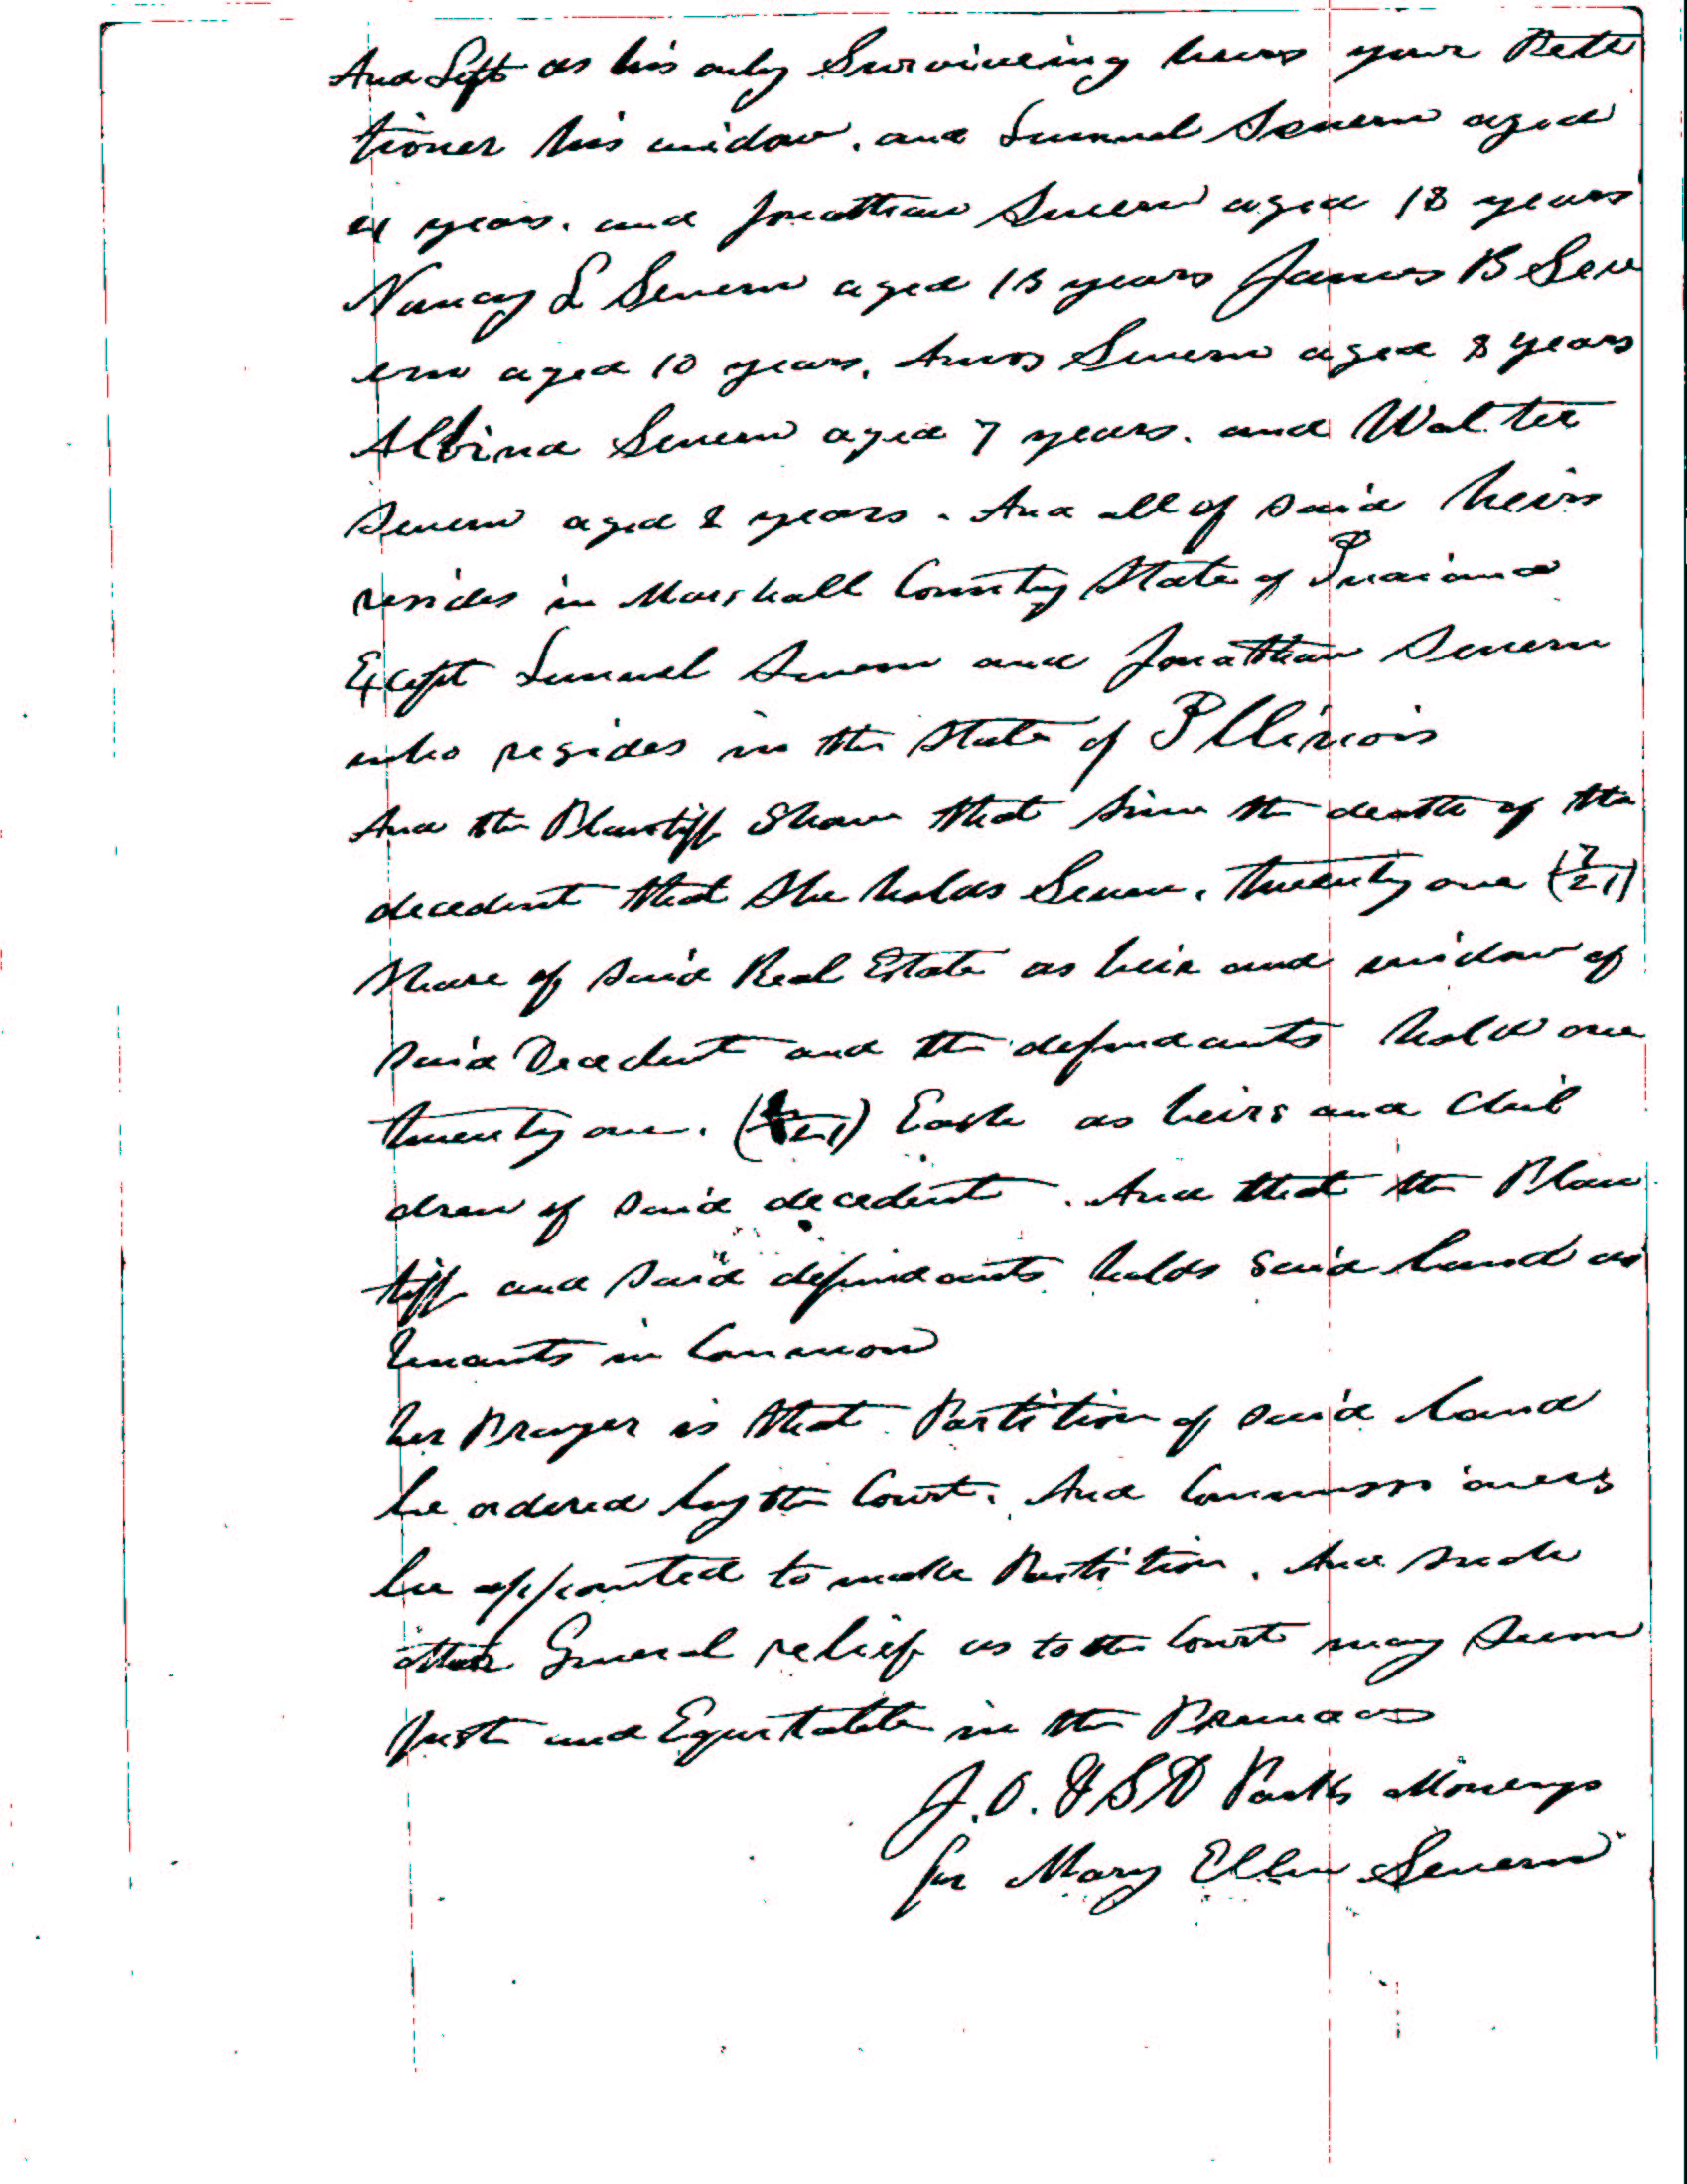 And Left as his only Surviveing heirs your Peti
tioner his widow. and Lemuel Severn aged
21 years. and Jonathan Severn aged 18 years
Nancy L Severn aged 13 years James B Sev
ern aged 10 years. Amos Severn aged 8 years
Albina Severn aged 7 years. and Walter
Severn aged 2 years. And all of said heirs
resides in Marshall County State of Indiana
Except Lemuel Severn and Jonathan Severn
who resides in the State of Illinois
And the Plaintiff Shows that since the death of the
decedent that she holds Seven. twenty one (7/21)
share of said Real Estate as heir and widow of
said Decedent and the defendants hold one
twenty one. (/21) Each as heirs and Chil
dren of said decedent. And that the Plain
tiff and said defendants holds said land as
tenants in Common
her Prayer is that Partition of said land
be ordered by the Court. And Commissioners
be appointed to make Partition. And such
other General relief as to the Court may seem
Just and Equitable in the Premises
J. O. & S D Parks Attorneys
for Mary Ellen Severn